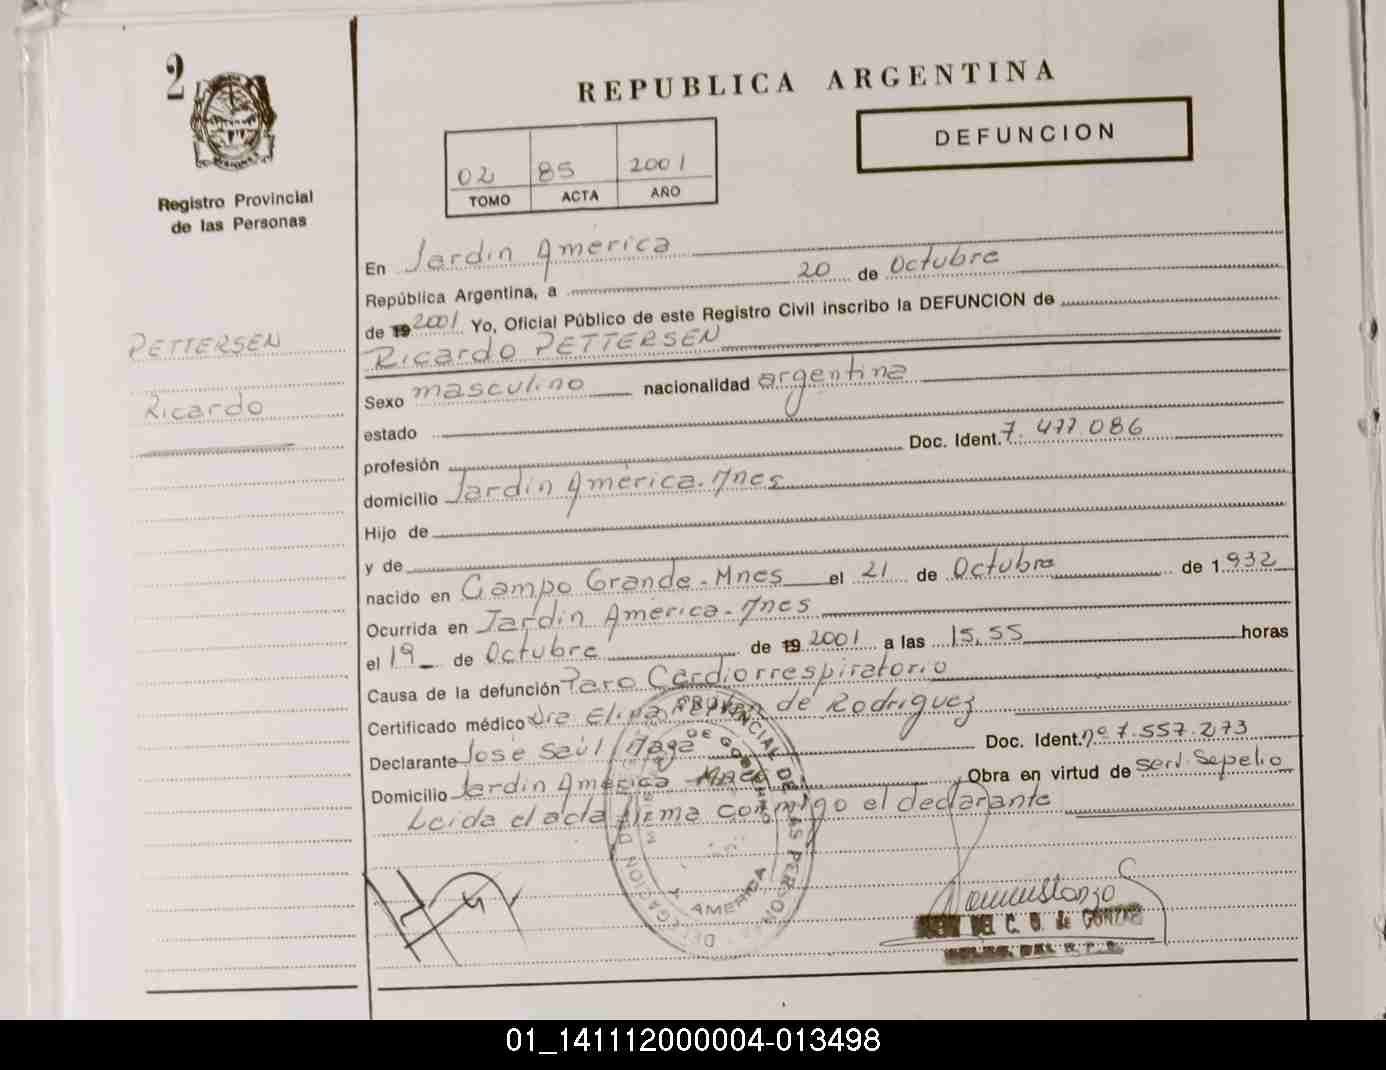 2
REPUBLICA ARGENTINA
DEFUNCION
02 85 2001
TOMO ACTA AÑO
Registro Provincial
de las Personas
PETTERSEN
Ricardo
En Jardin America
República Argentina, a 20 de Octubre
de 19 2001 Yo, Oficial Público de este Registro Civil inscribo la DEFUNCION de
Ricardo PETTERSEN
Sexo masculino nacionalidad argentina
estado
profesión Doc. Ident. 7.477.086
domicilio Jardin America. Mnes
Hijo de
y de
nacido en Campo Grande - Mnes el 21 de Octubre de 1.932
Ocurrida en Jardin America - Mnes
el 19 de Octubre de 19 2001 a las 15,55 horas
Causa de la defunción Paro Cardiorrespiratorio
Certificado médico Dra Elina de Rodriguez
Declarante Jose Saúl Doc. Ident. nº 7.557.273
Domicilio Jardin America Mnes Obra en virtud de Serv. Sepelio
Leida el acta firma conmigo el declarante
PROVINCIAL DE LAS PERSONAS
DELEGACION
AMERICA
DEL C. G. de
01_141112000004-013498